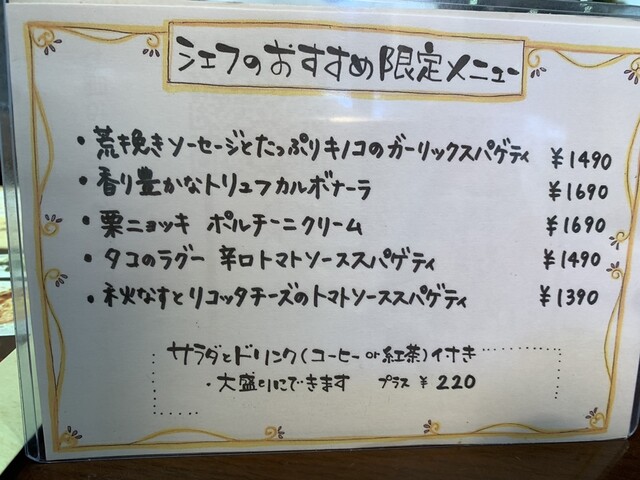 シェフのおすすめ限定メニュー
・荒挽きソーセージとたっぷりキノコのガーリックスパゲティ ¥1490
・香り豊かなトリュフカルボナーラ ¥1690
・栗ニョッキ ポルチーニクリーム ¥1690
・タコのラグー 辛口トマトソーススパゲティ ¥1490
・秋なすとリコッタチーズのトマトソーススパゲティ ¥1390
サラダとドリンク(コーヒー or 紅茶)付き
・大盛りにできます プラス ¥220